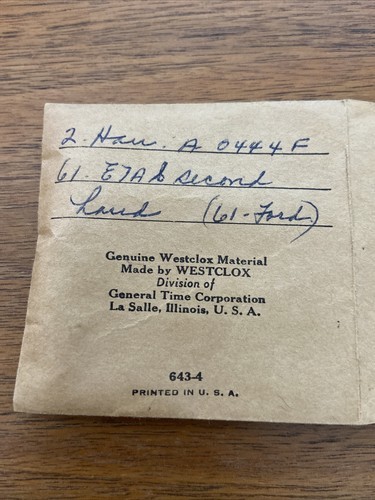 2. Han. A 0444F
61. E7A6 second
hand (61-Ford)
Genuine Westclox Material
Made by WESTCLOX
Division of
General Time Corporation
La Salle, Illinois, U. S. A.
643-4
PRINTED IN U. S. A.